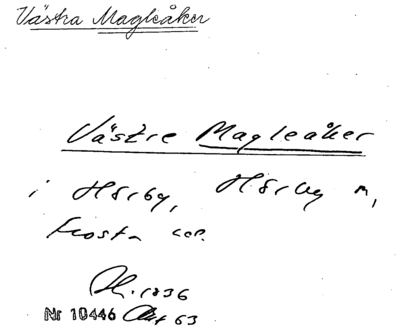 Västra Magleåker
Västre Magleåker
i Hörby, Hörby n,
Frosta
1836
Nr 10446 63